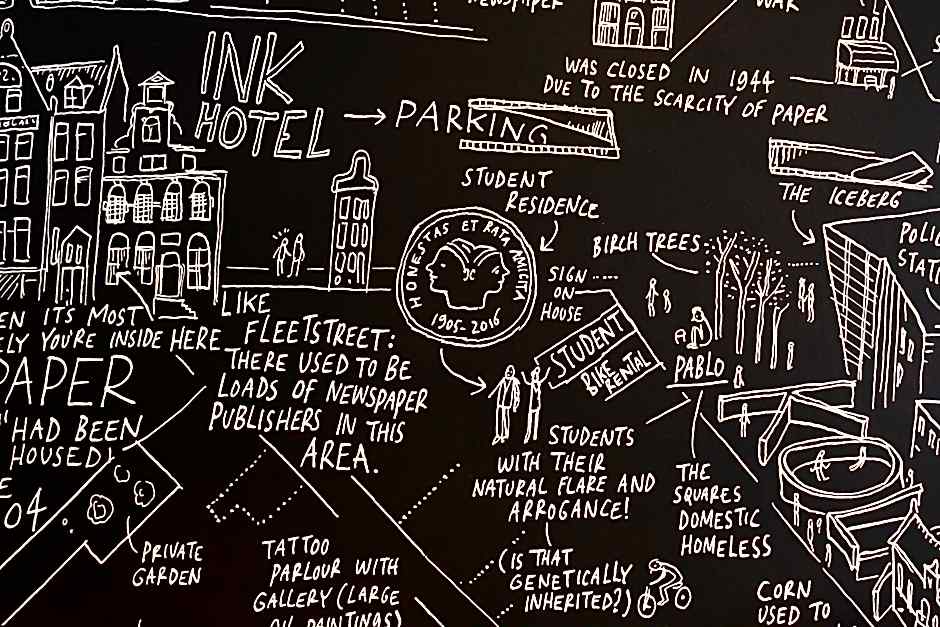 NEWSPAPER
WAR
INK
HOTEL
PARKING
WAS CLOSED IN 1944
DUE TO THE SCARCITY OF PAPER
STUDENT
RESIDENCE
THE ICEBERG
HONESTAS ET RATA AMICITA
1905-2016
BIRCH TREES
SIGN
ON
HOUSE
STUDENT
BIKE
RENTAL
PABLO
IT'S MOST
YOU'RE INSIDE HERE
PAPER
HAD BEEN
HOUSED!
04
LIKE
FLEETSTREET:
THERE USED TO BE
LOADS OF NEWSPAPER
PUBLISHERS IN THIS
AREA.
STUDENTS
WITH THEIR
NATURAL FLARE AND
ARROGANCE!
(IS THAT
GENETICALLY
INHERITED?)
THE
SQUARES
DOMESTIC
HOMELESS
PRIVATE
GARDEN
TATTOO
PARLOUR WITH
GALLERY (LARGE
OIL PAINTINGS)
CORN
USED TO